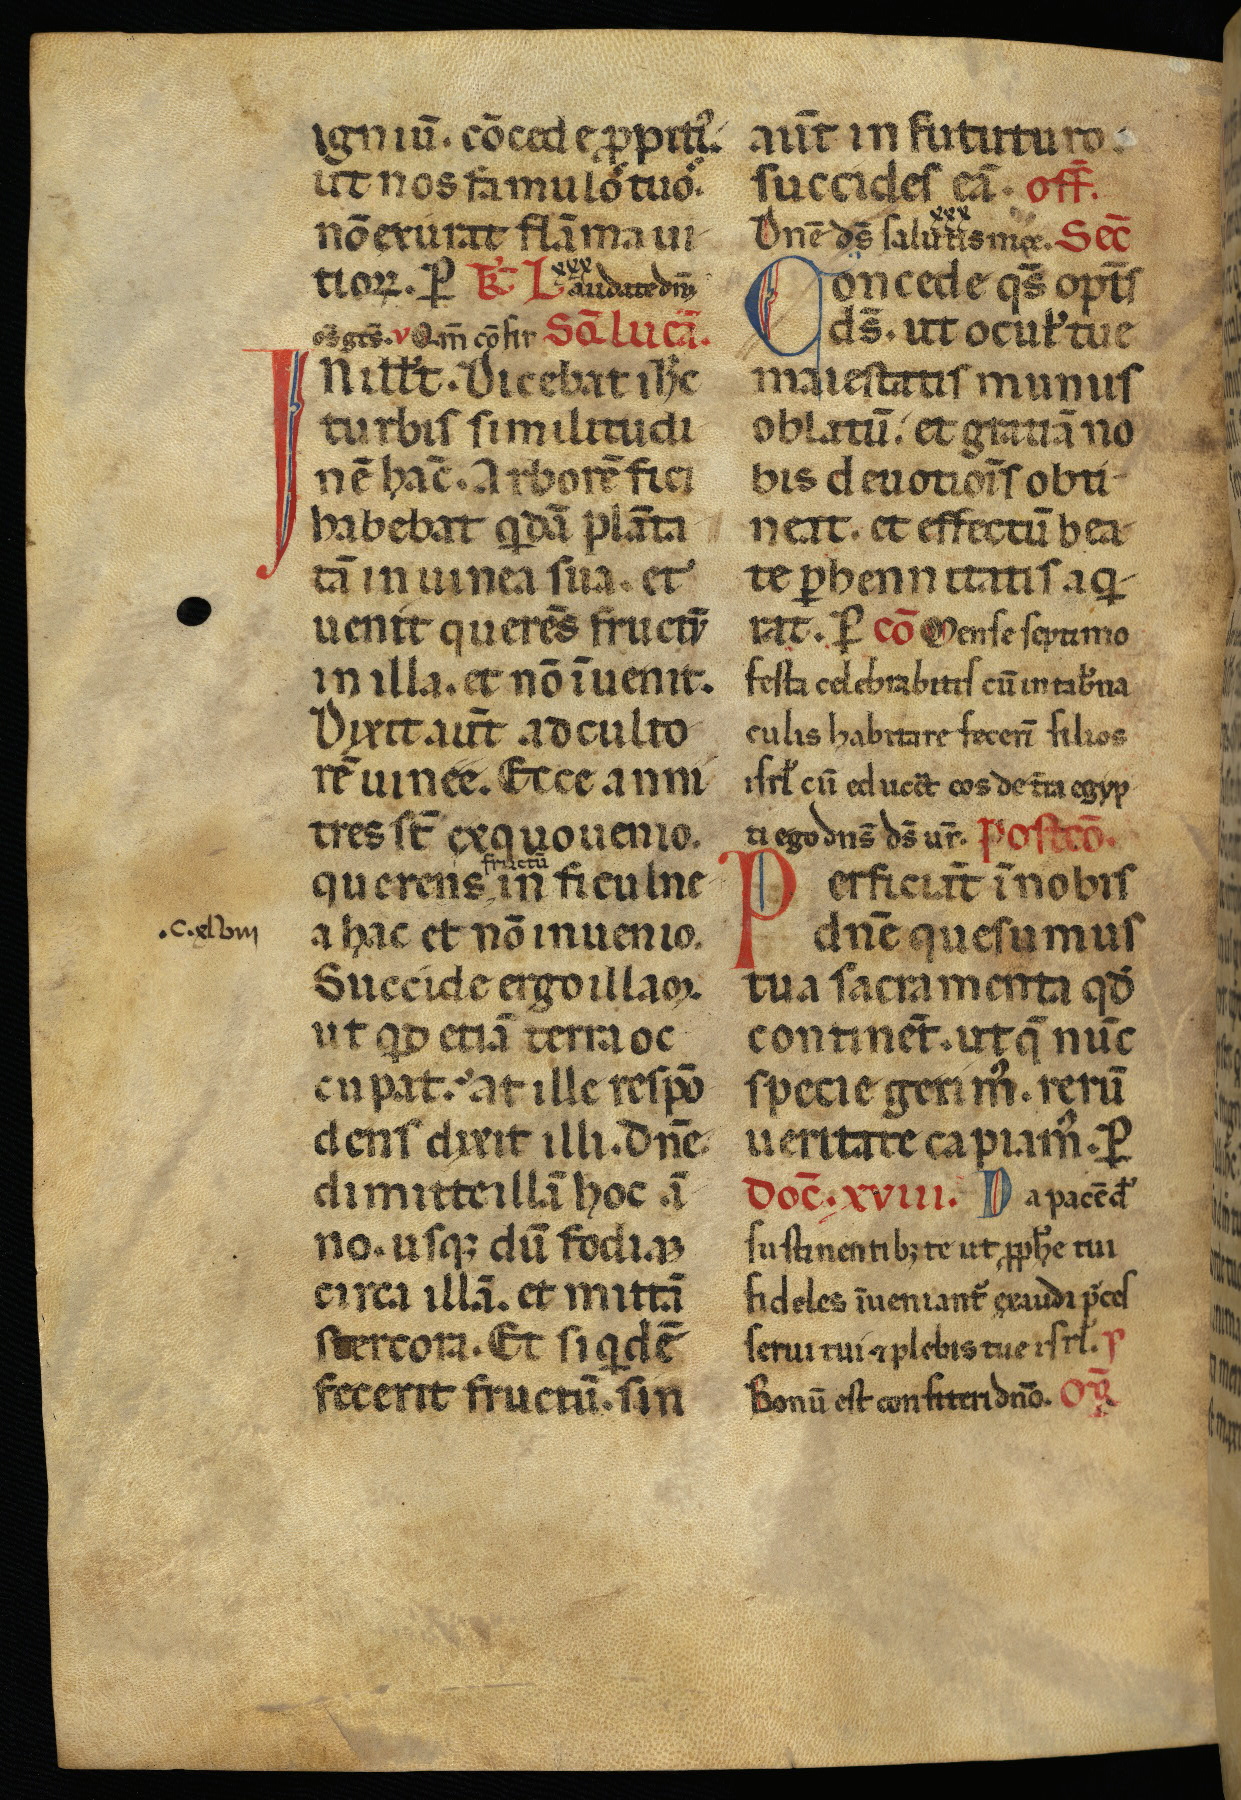 igniũ. cõcede ꝓpitiꝰ.
ut nos famuloꝰ tuoꝰ.
nõ exurat flãma ui
tioꝝ. ꝑ K̃ Laudate dñm
oẽs gẽtes. v Qm̃ cõfir Scd̃a lucã.
IN illo t̃. Dicebat ih̃c
turbis similitudi
nẽ hãc. Arborẽ fici
habebat qͥdã plãta
tã in uinea sua. et
uenit querẽs fructũ
in illa. et nõ ĩuenit.
Dixit aut̃ ad culto
rẽ uinee. Ecce anni
tres st̃ ex quo uenio.
querens fructũ in ficulne
a hac et nõ inuenio.
.C.xlviii
Succide ergo illaꝫ.
ut qͥd etiã terra oc
cupat. at ille respõ
dens dixit illi. Dñe
dimitte illã hoc ã
no. usqꝫ dũ fodiaꝫ
circa illã. et mittã
stercora. Et si qͥdẽ
fecerit fructũ. sin
aut̃ in fututuro.
succides eã. off̃.
Dñe ds̃ salutis mee. Sec̃
Concede qs̃ opt̃s
ds̃. ut oculꝭ tue
maiestatis munus
oblatũ. et gratiã no
bis deuotiõis obti
neat. et effectũ bea
te ꝑhennitatis aqͥ
rat. ꝑ cõ Mense septimo
festa celebrabitis cũ in tab̃na
culis habitare fecerĩ filios
isrł cũ educerẽ eos de t̃ra egyp
ti ego dñs ds̃ ur̃. Postcõ.
Perficiat̃ ĩ nobis
dñe quesumus
tua sacramenta qd̃
continẽt. ut q̃ nũc
specie gerimꝰ. rerũ
ueritate capiamꝰ. ꝑ
Doc̃. xviii. Da pacẽ d̃
sustinentibꝫ te ut ꝓph̃e tui
fideles ĩueniant̃ exaudi p̃ces
serui tui ⁊ plebis tue isrł. P̃
Bonũ est confiteri dñõ. Or̃